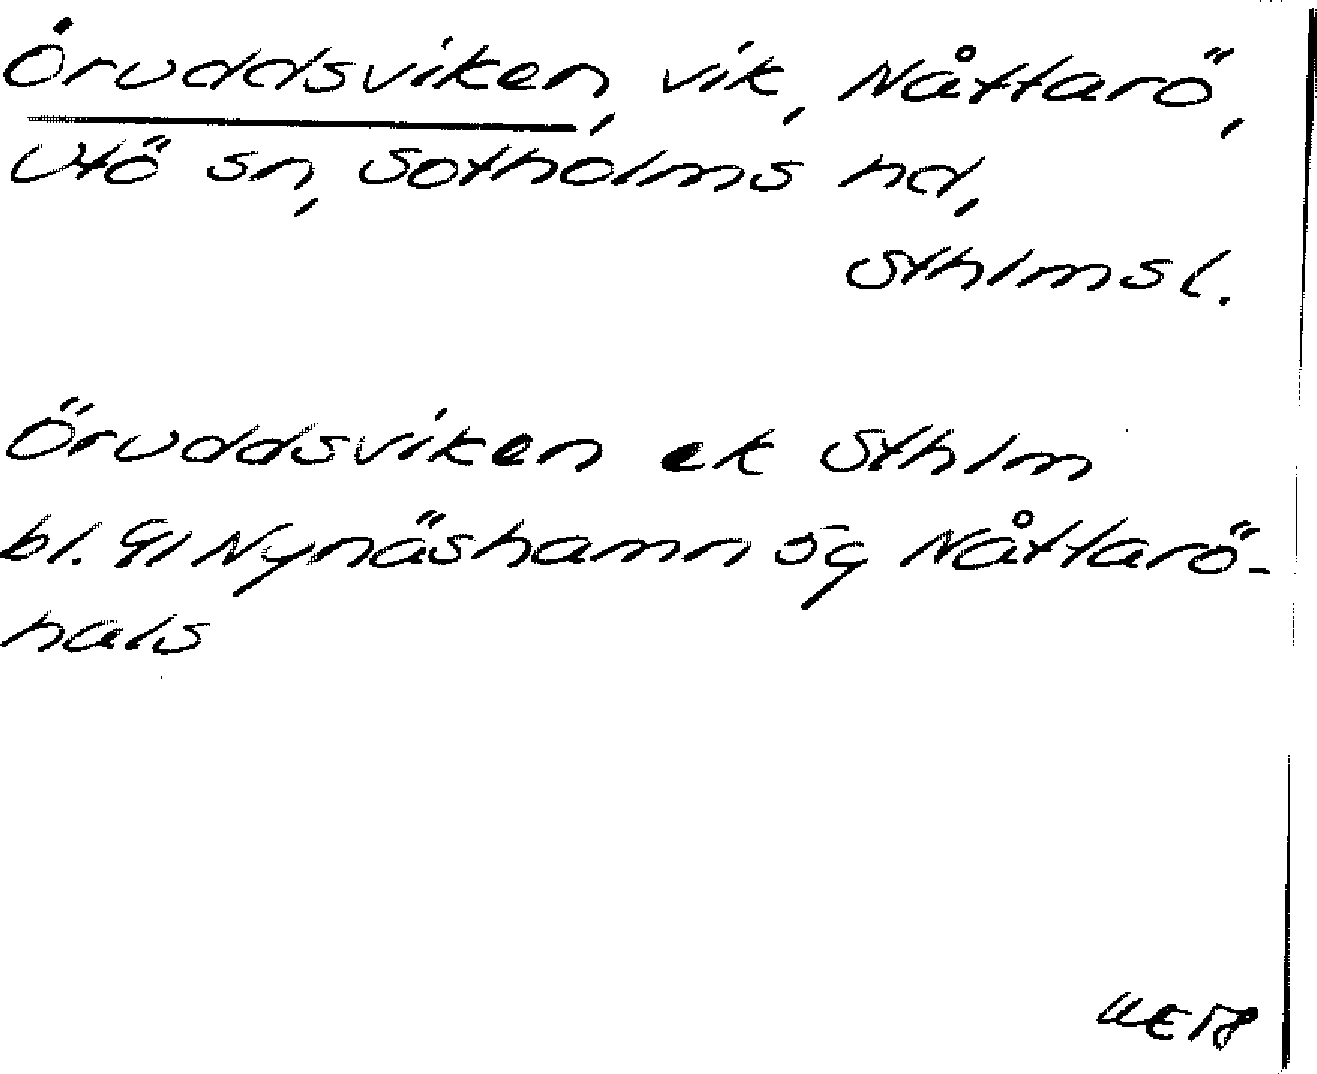 Öruddsviken, vik, Nåttarö,
Utö sn, Sotholms hd,
Sthlms l.
Öruddsviken ek Sthlm
bl. 91 Nynäshamn 5g Nåttarö-
hals